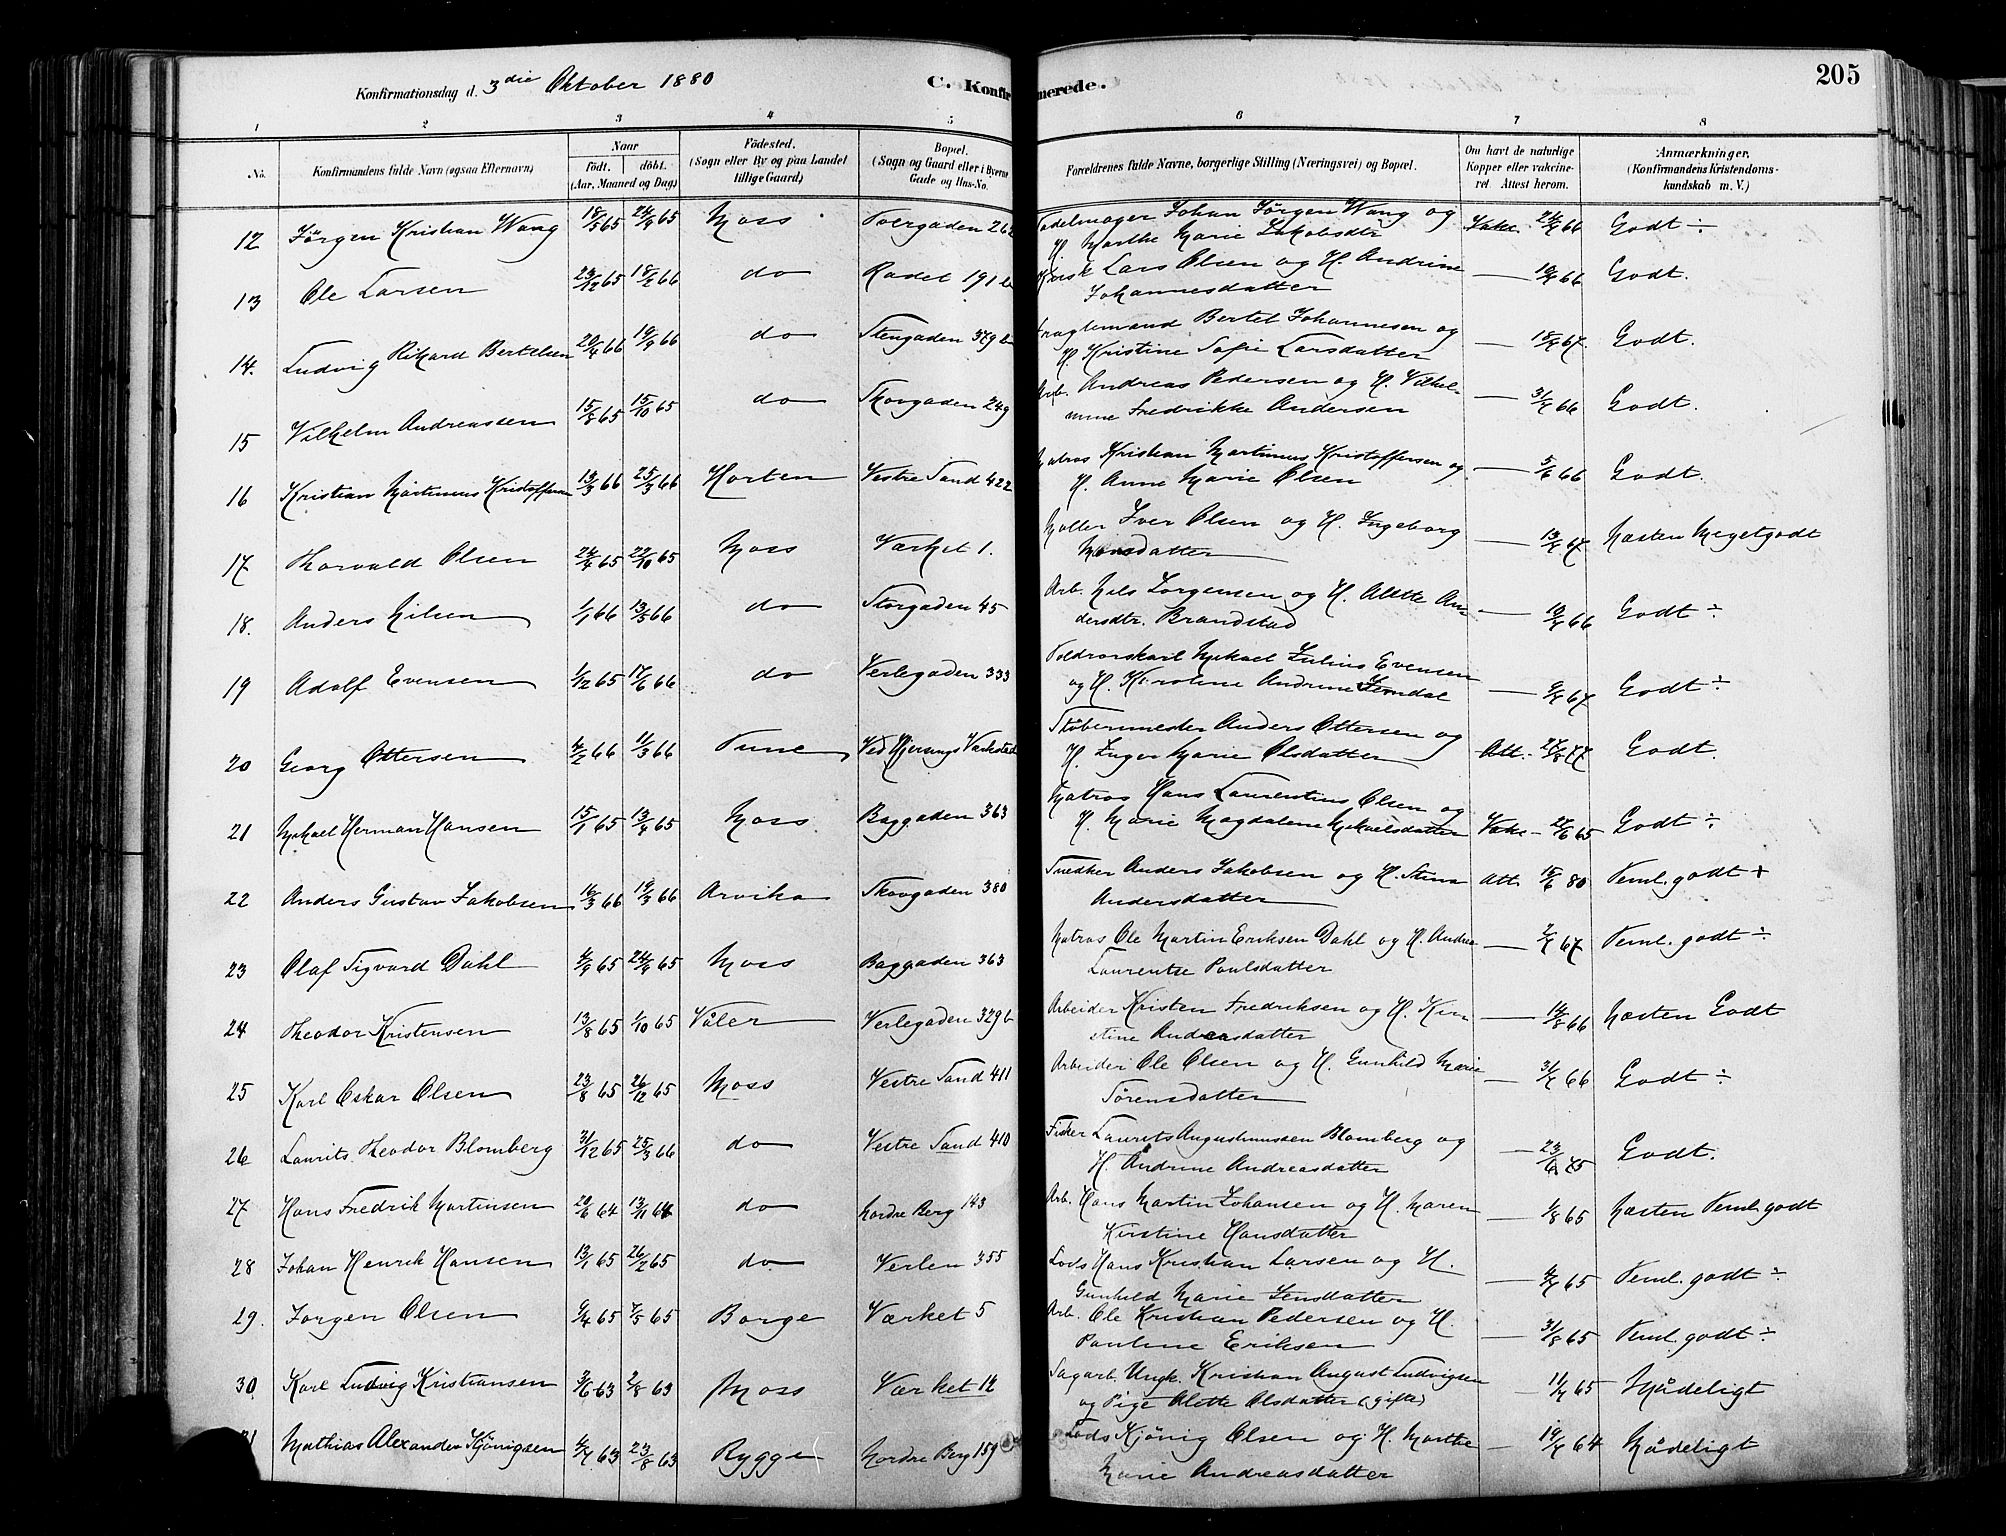 Konfirmationsdag d. 3die Oktober 1880
C. Konfirmerede.
205
1 2 3 4 5 6 7 8
No. Konfirmandens fulde Navn (ogsaa Efternavn) Naar födt. döbt. (Aar, Maaned og Dag) Födested. (Sogn eller By og paa Landet tillige Gaard) Bopæl. (Sogn og Gaard eller i Byerne Gade og Hus-No. Forældrenes fulde Navne, borgerlige Stilling (Næringsvei) og Bopæl. Om havt de naturlige Kopper eller vakcineret. Attest herom. Anmærkninger, (Konfirmandens Kristendomskundskab m. V.)
12 Jörgen Kristian Wang 18/5 65 24/9 65 Moss Johan Jörgen Wang og
H. Marthe Marie Jakobsdtr Vakc. 66 Godt ÷
13 Ole Larsen 23/12 65 18/2 66 do Radet 191 b Lars Olsen og H. Andrine
Johannesdatter — 66 Godt.
14. Ludvig Rikard Bertelsen 20/4 66 66 do Stengaden 379 Bertel Johannesen og
H. Kristine Sofie Larsdatter — 67 Godt.
15 Vilhelm Andreassen 15/8 65 15/10 65 do Skovgaden 249 Arb. Andreas Pedersen og H. Vilhel-
mine Fredrikke Andersen — 66 Godt.
16 Kristian Martinius Kristoffersen 13/3 66 25/3 66 Horten Vestre Sand 422 Matros Kristian Martinius Kristoffersen og
H. Anne Marie Olsen — 5/6 66 Godt.
17 Thorvald Olsen 65 22/10 65 Moss Værket 1. Möller Iver Olsen og H. Ingeborg
Monsdatter — 67 Næsten Megetgodt
18. Anders Nilsen 1/1 66 13/5 66 do Storgaden 45 Arb. Nils Jörgensen og H. Alette An-
dersdtr. Brandstad — 66 Godt ÷
19 Adolf Evensen 1/12 65 17/6 66 do Verlegaden 333 Mikael Julius Evensen
og H. Karoline Andrine — 67 Godt ÷
20 Georg Ottersen 4/2 66 11/3 66 Tune Ved Værksted Støbermester Anders Ottersen og
H. Inger Marie Olsdatter Att. 77 Godt.
21 Mikael Herman Hansen 15/1 65 65 Moss Baggaden 363 Matros Hans Laurentius Olsen og
H. Marie Magdalene Mikaelsdatter Vakc — 65 Godt ÷
22 Anders Gustav Jakobsen 16/3 66 19/3 66 Arvika Skovgaden 380 Snedker Anders Jakobsen og H. Stina
Andersdatter Att. 80 Teml. godt +
23 Olaf Sigvard Dahl 65 24/9 65 Moss Baggaden 363 Matros Ole Martin Eriksen Dahl og H. Andrea
Laurentse Paulsdatter — 67 Teml. godt ÷
24 Theodor Kristensen 13/8 65 1/10 65 Våler Verlegaden 329 b Arbeider Kristen Fredriksen og H. Kir-
stine Andreasdatter — 14/8 66 Næsten Godt
25 Karl Oskar Olsen 23/8 65 26/12 65 Moss Vestre Sand 411 Arbeider Ole Olsen og H. Gunhild Marie
Sörensdatter — 66 Godt ÷
26 Laurits Theodor Blomberg 31/12 65 25/3 66 do Vestre Sand 410 Fisker Laurits Augustinussen Blomberg og
H. Andrine Andreasdatter — 23/6 75 Godt.
27 Hans Fredrik Martinsen 20/6 64 13/11 64 do Nordre Berg 143 Arb. Hans Martin Johansen og H. Maren
Kirstine Hansdatter — 1/8 65 Næsten Teml. godt
28 Johan Henrik Hansen 13/1 65 26/2 65 do Verlen 355 Lods Hans Kristian Larsen og H.
Gunhild Marie Jensdatter — 65 Teml. godt ÷
29. Jorgen Olsen 9/4 65 7/5 65 Borge Værket 5 Arb. Ole Kristian Pedersen og H.
Pauline Eriksen — 31/8 65 Teml. godt ÷
30 Karl Ludvig Kristiansen 3/6 63 2/8 63 Moss Værket 12 Sagarb. Ungk. Kristian August Ludvigsen
og Pige Olette Olsdatter (gifte) — 65 Mådeligt
31 Mathias Alexander Kjönigsen 63 23/8 63 Rygge Nordre Berg 159 Lods Kjönig Olsen og H. Marthe
Marie Andreasdatter — 64 Mådeligt